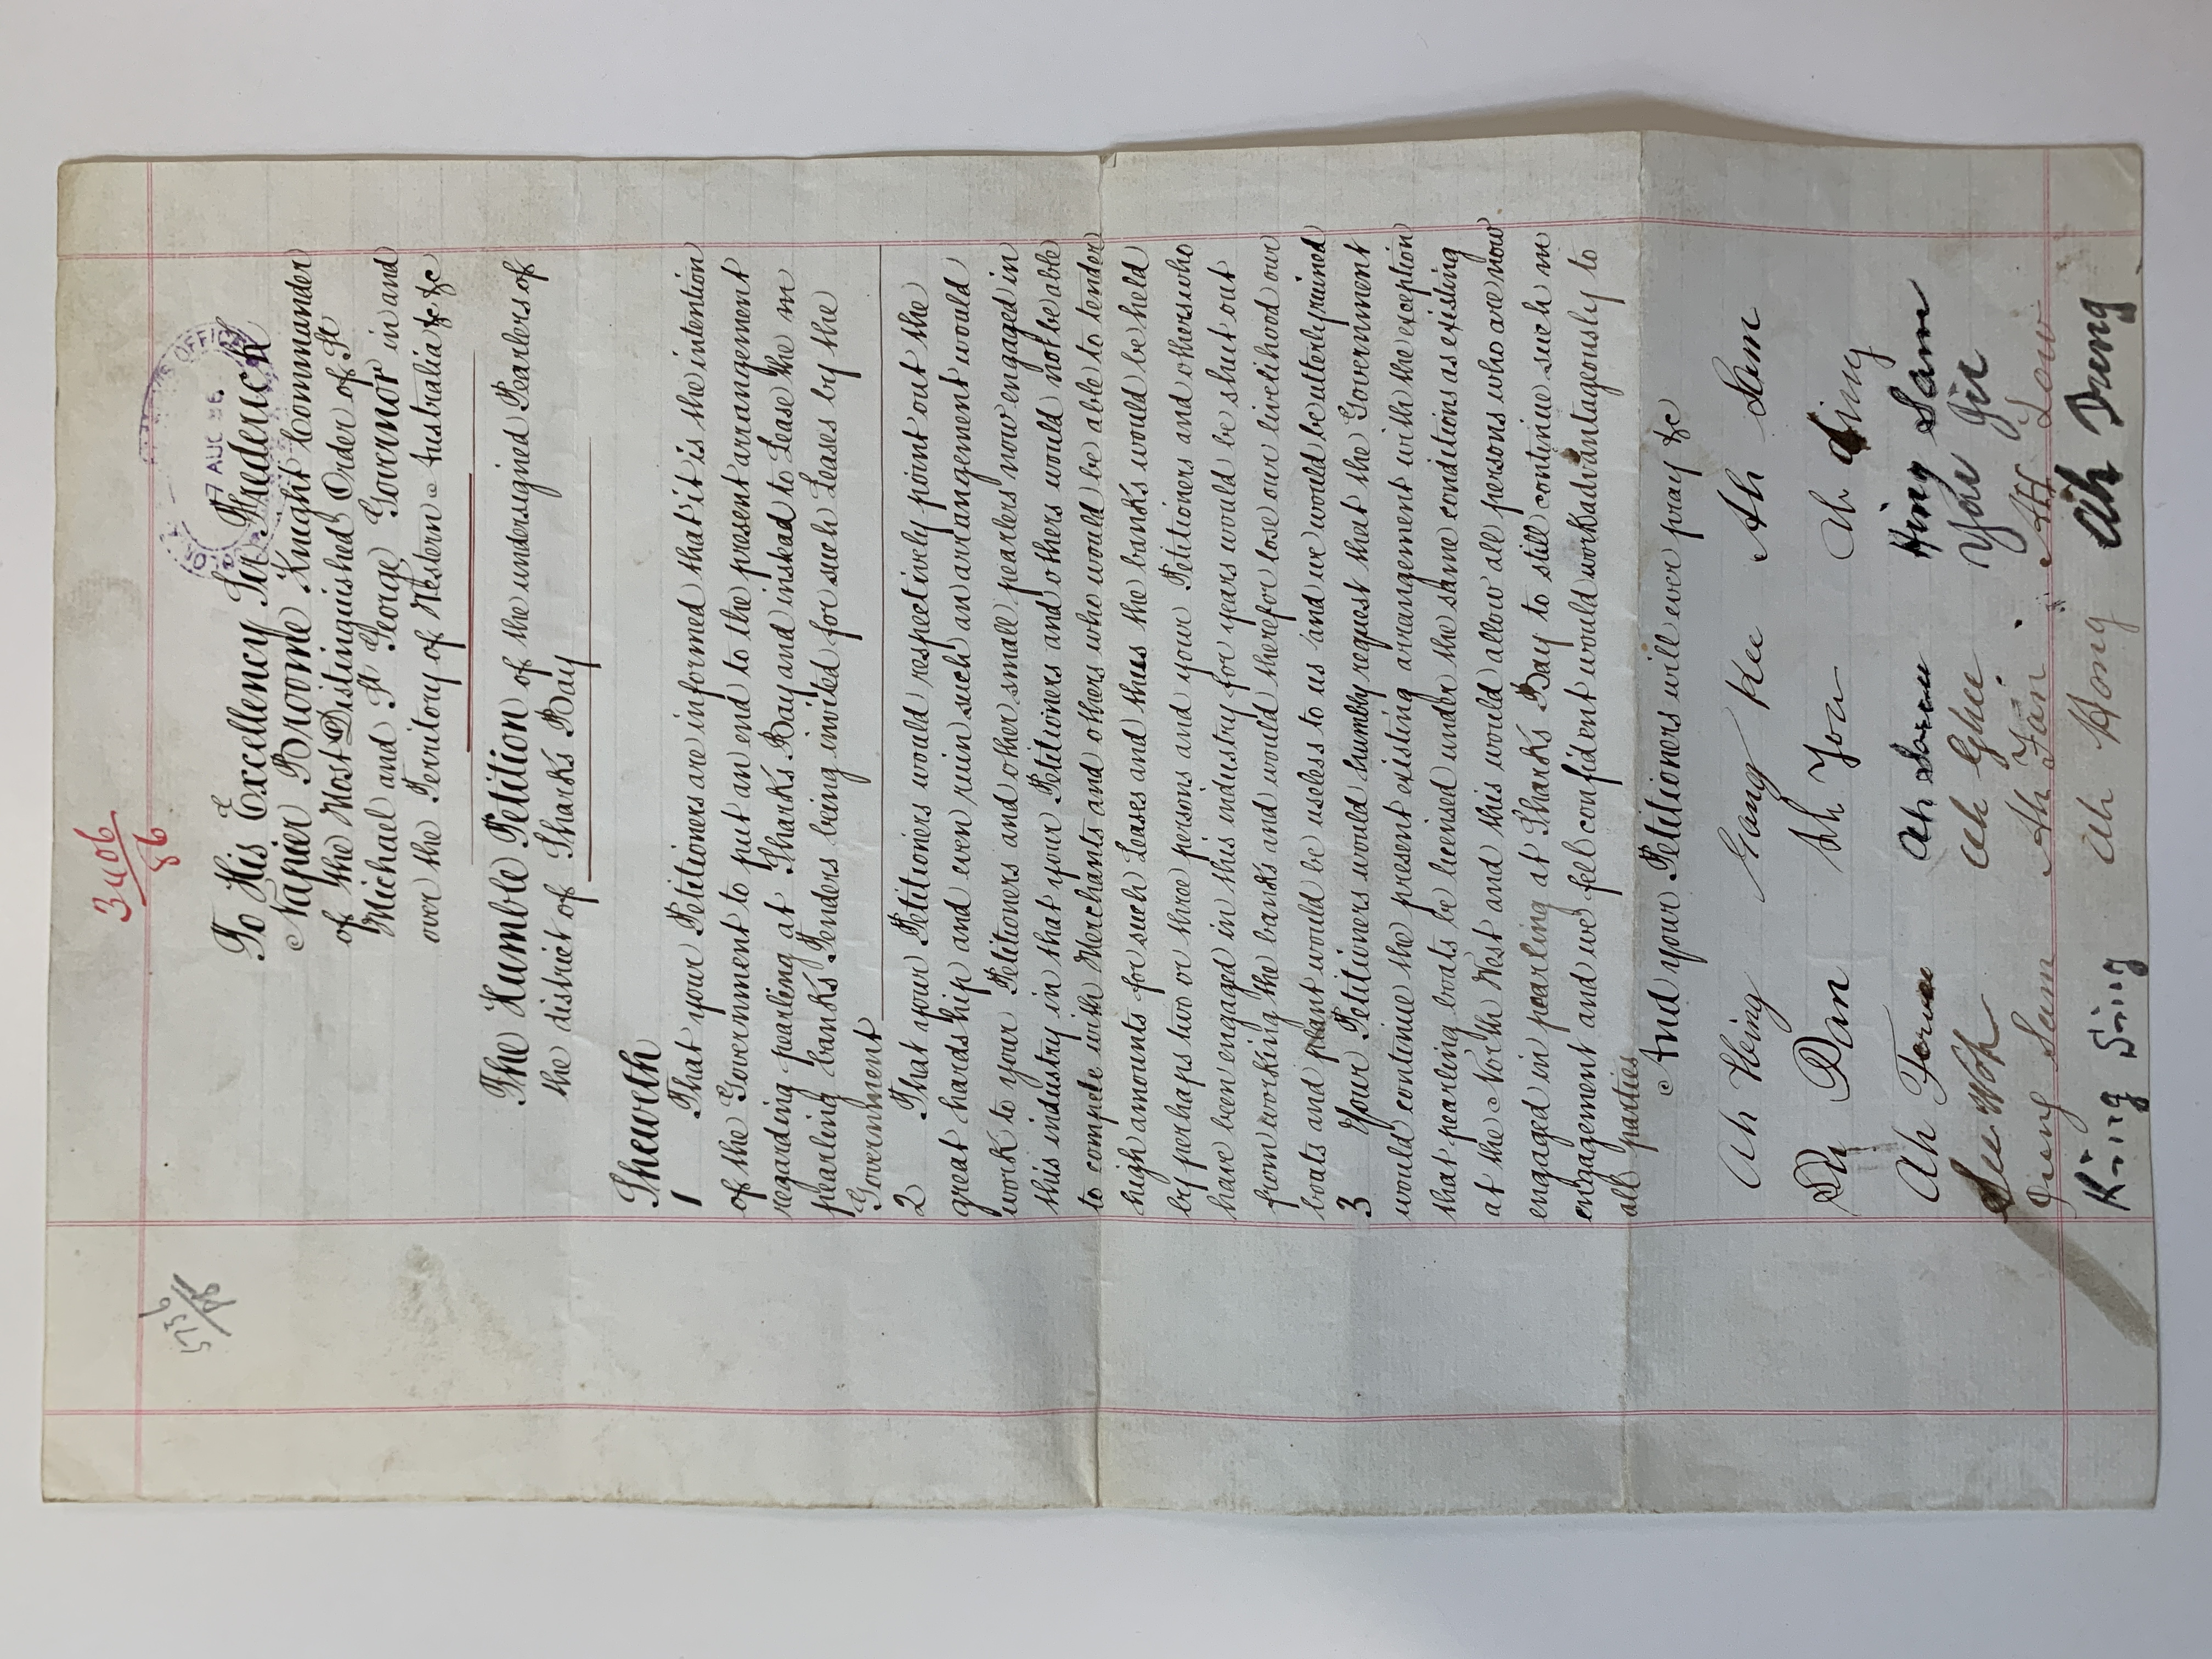 3406/86
5736/86
7 AUG 86
To His Excellency Sir Frederick
Napier Broome Knight Commander
of the Most Distinguished Order of St
Michael and St George Governor in and
over the Territory of Western Australia &c &c
The Humble Petition of the undersigned Pearlers of
the district of Sharks Bay
Sheweth
1 That your Petitioners are informed that it is the intention
of the Government to put an end to the present arrangement
regarding pearling at Sharks Bay and instead to Lease the in
pearling banks Tenders being invited for such Leases by the
Government
2 That your Petitioners would respectively point out the
great hardship and even ruin such an arrangement would
work to your Petitioners and other small pearlers now engaged in
this industry in that your Petitioners and others would not be able
to compete with Merchants and others who would be able to tender
high amounts for such Leases and thus the banks would be held
by perhaps two or three persons and your Petitioners and others who
have been engaged in this industry for years would be shut out
from working the banks and would therefor lose our livelihood our
boats and plant would be useless to us and we would be utterly ruined
3 Your Petitioners would humbly request that the Government
would continue the present existing arrangement with the exception
that pearling boats be licensed under the same conditions as existing
at the North West and this would allow all persons who are now
engaged in pearling at Sharks Bay to still continue such in
engagement and we fell confident would work advantageously to
all parties
And your Petitioners will ever pray &c
Ah Heing Gang Kee Ah Sam
Dy Don Ah You Ah Sing
Ah Ah Hing Sam
See Wok Ah Ghee You Gee
Qung Sam Ah Fan Ah Low
King Sing Ah Hong Ah Dung